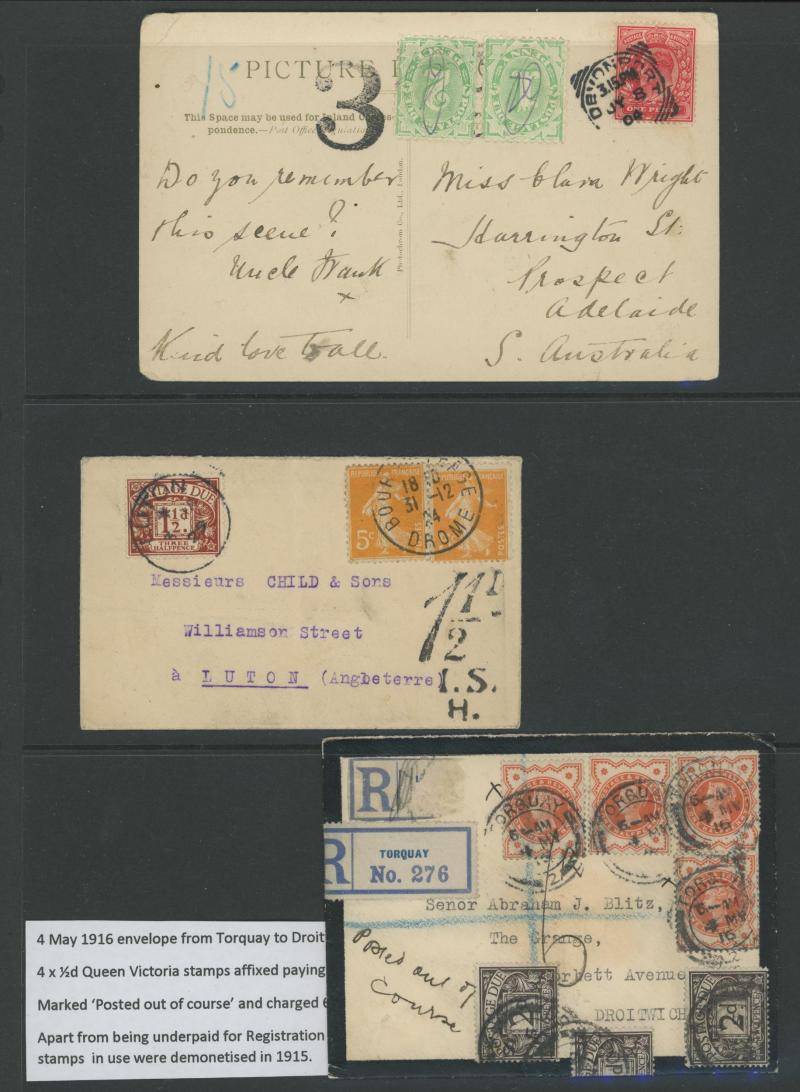 15
PICTURE
3
This Space may be used for Inland
pondence.—Post Office
Photochrom Co., Ltd., London.
DEVONPORT
3.15PM
JY 8
04
ONE PENNY
Do you remember
this scene?
Uncle Frank
x
Kind love to all.
Miss Clara Wright
Harrington St.
Prospect
Adelaide
S. Australia
LUTON
POSTAGE DUE
1½d.
THREE
HALFPENCE
REPUBLIQUE FRANÇAISE
5c
POSTES
18
31-12
24
DROME
Messieurs CHILD & Sons
Williamson Street
à LUTON (Angleterre)
1½D.
I.S.
H.
R
TORQUAY
R No. 276
TORQUAY
6-AM
4 MY
16
TORQUAY
6-AM
4 MY
16
6-AM
4 MY
16
TORQUAY
6-AM
4 MY
16
Senor Abraham J. Blitz,
The Grange,
Corbett Avenue
DROITWICH
Posted out of
Course
POSTAGE DUE
2d
POSTAGE DUE
2d
4 May 1916 envelope from Torquay to Droit
4 x ½d Queen Victoria stamps affixed paying
Marked ‘Posted out of course’ and charged 6
Apart from being underpaid for Registration
stamps in use were demonetised in 1915.